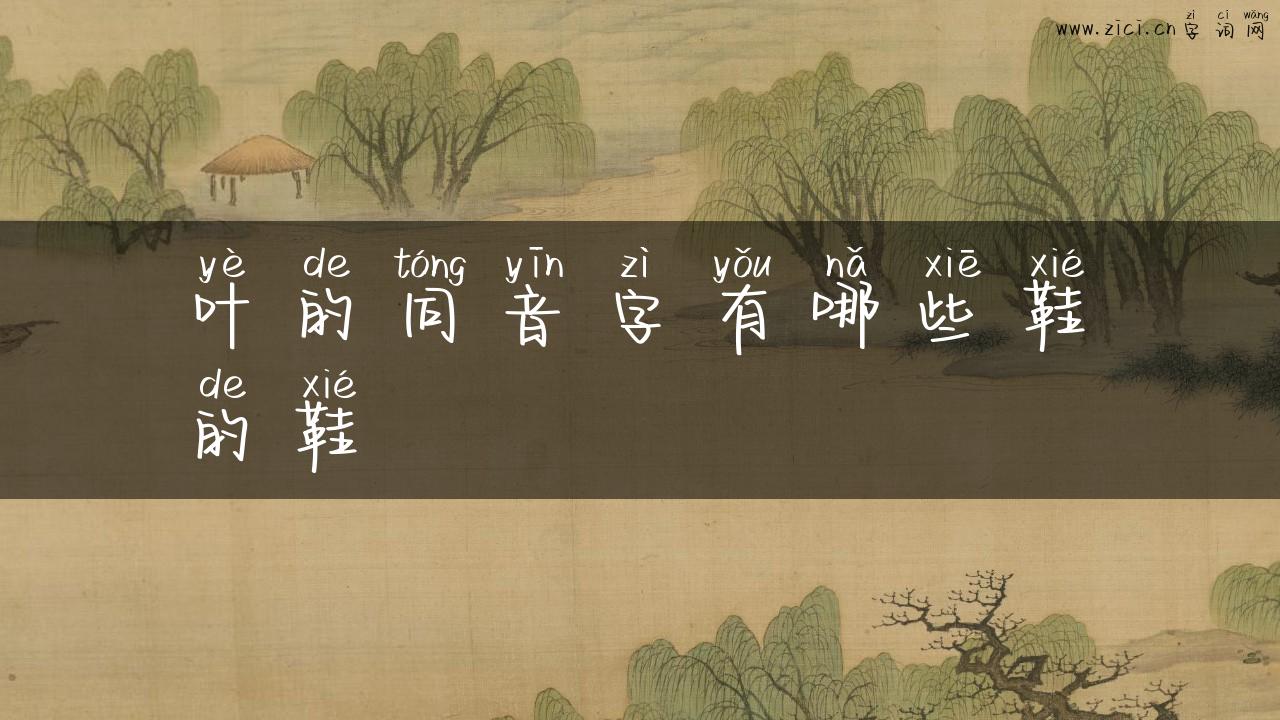 www.zici.cn
zì cí wǎng
字词网
yè de tóng yīn zì yǒu nǎ xiē xié
叶的同音字有哪些鞋
de xié
的鞋